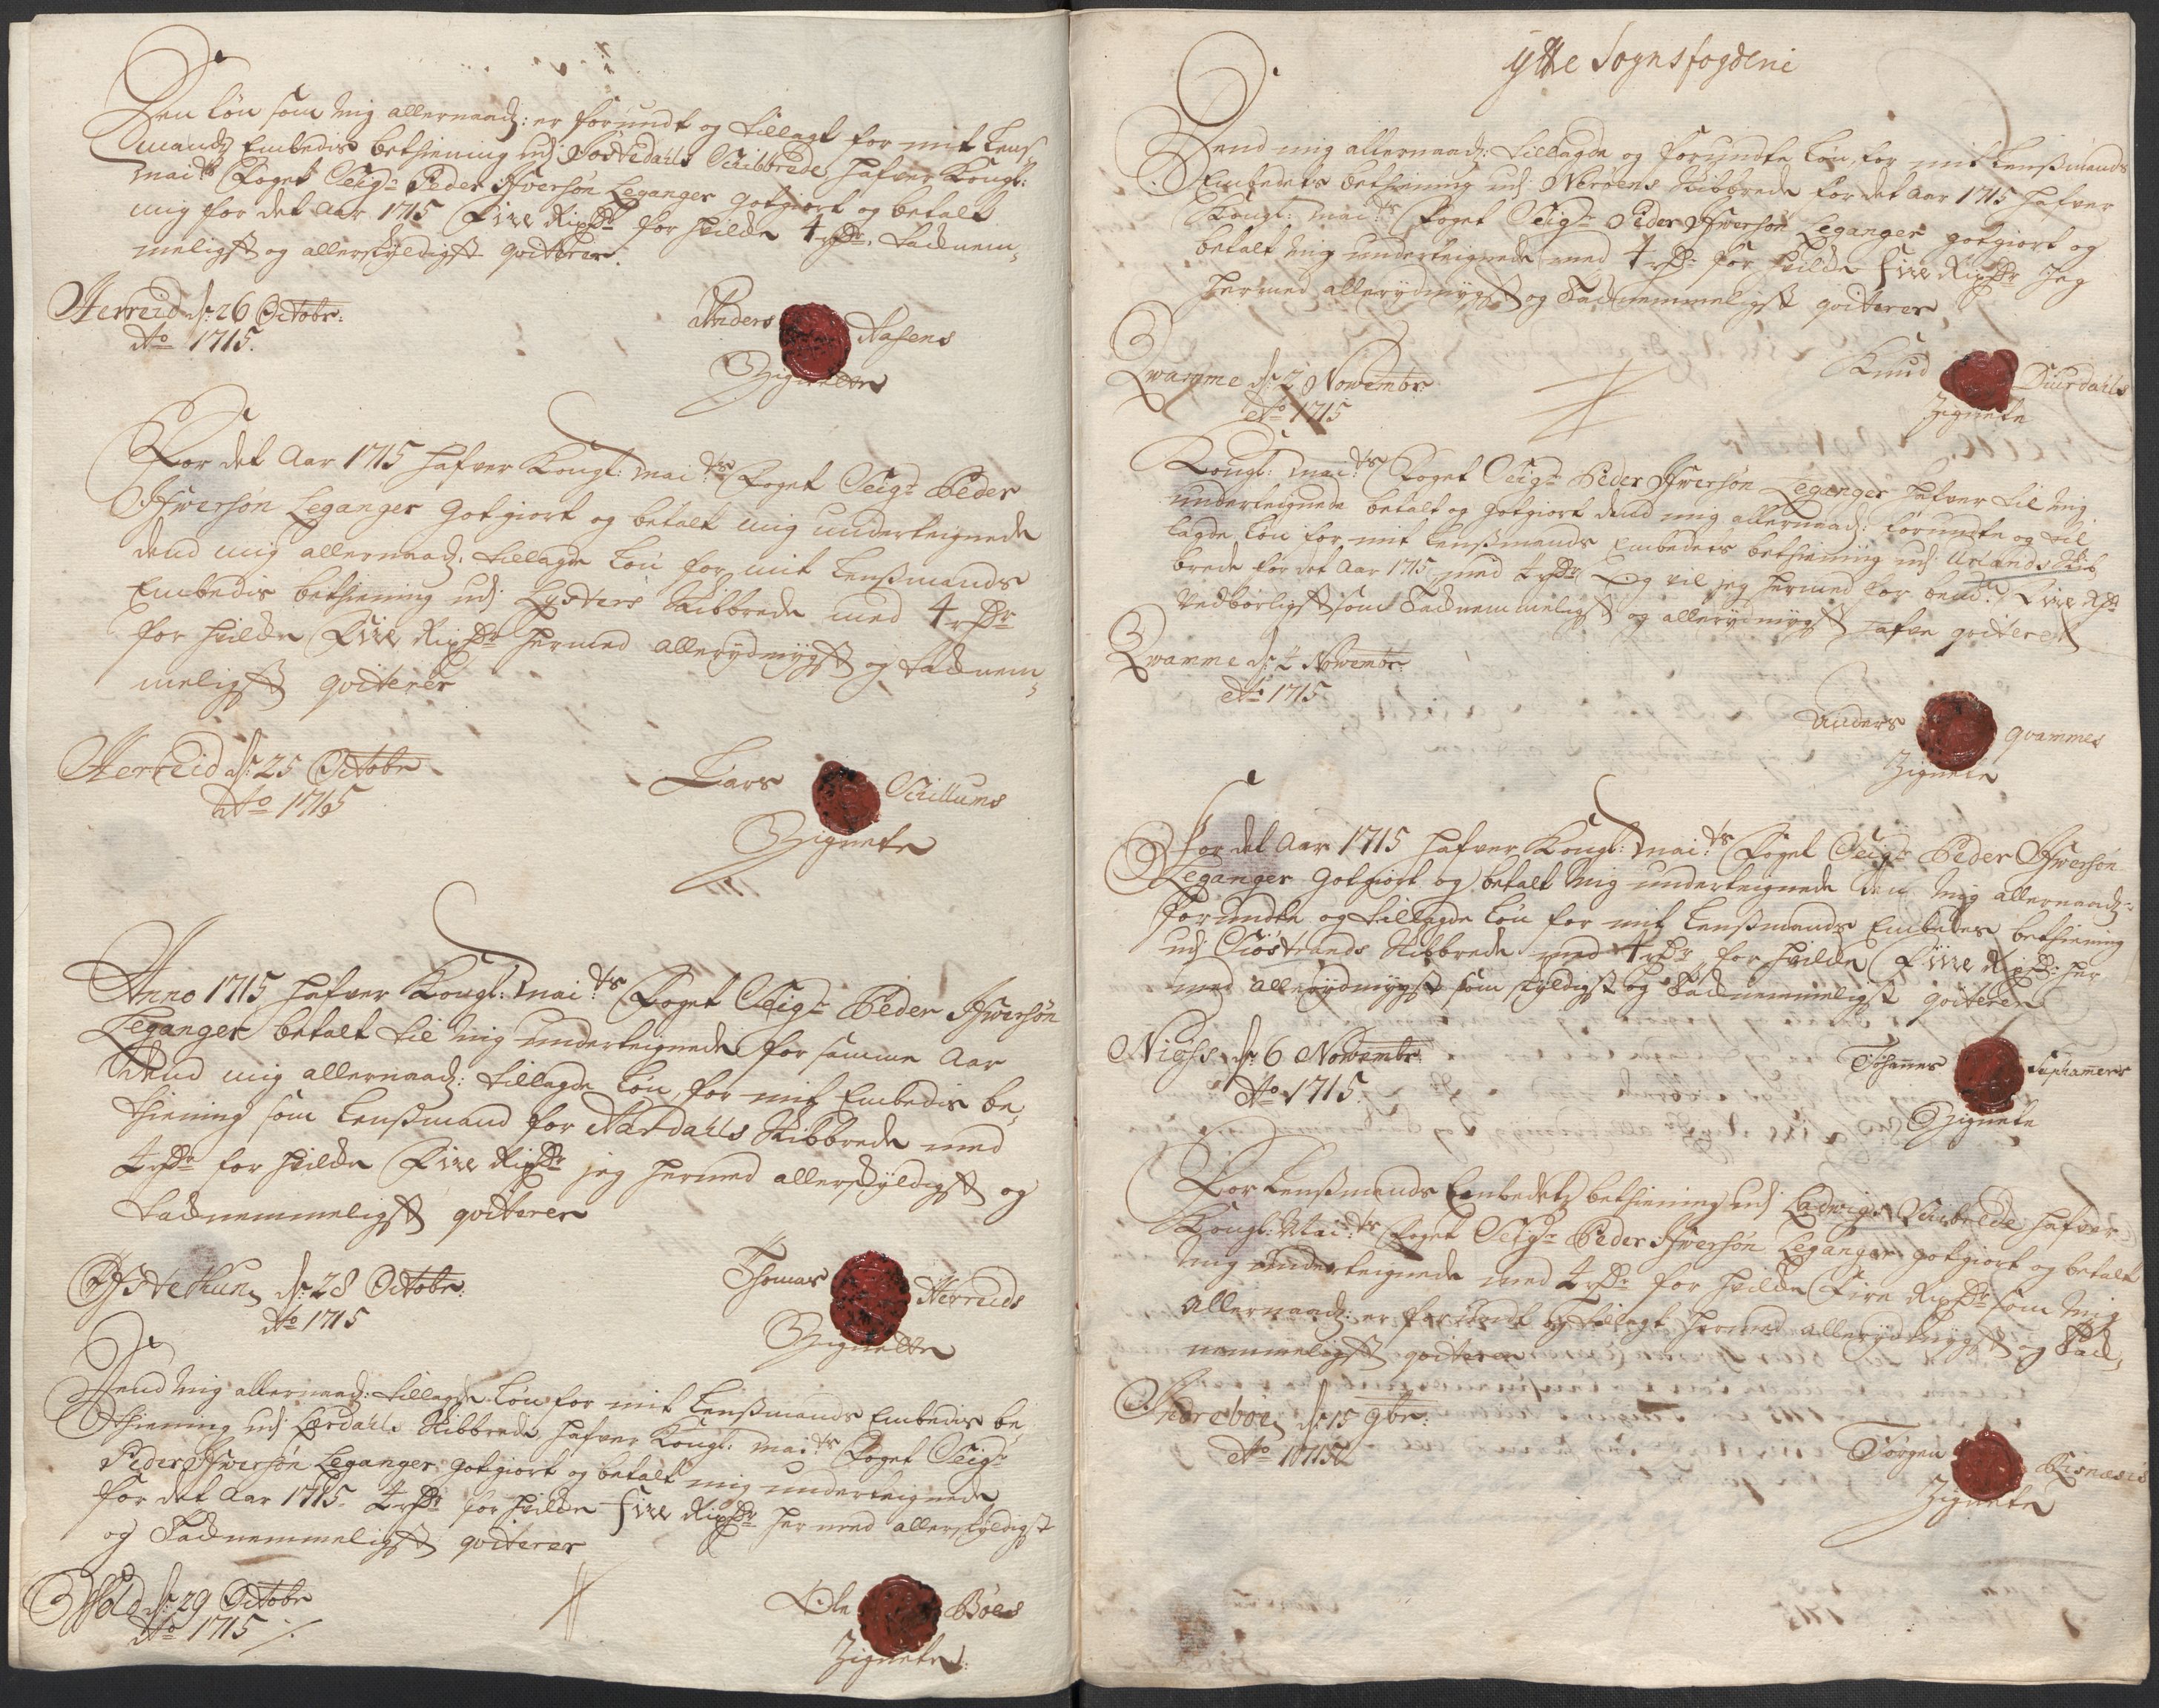 Den løn som mig allernaad: er forundt og tillagt for mit Lens
mands Embedis bethiening udj Jostedahls Schibbrede hafver Kongl:
Mai.ts Foget Seigr Peder Ifversøn Leganger gotgiort og betalt
mig for det Aar 1715 Fire Rixdr for hvilde 4 rdr. tacknem-
meligst og allerskyldigst qvitterer.
Herreid d: 26 Octobr:
Ao 1715.
Anders Aasens
Zignette
For det Aar 1715 hafver Kongl: Mai:ts Foget Seigr Peder
Ifversøn Leganger gotgiort og betalt mig underteignede
dend mig allernaad: tillagde løn for mit Lensmands
Embedis bethiening udj Lysters Skibbrede med 4 rdr
for hvilde Fire Rixdr hermed allerydmygst og tacknem-
meligst qviterer
Herreid d: 25 Octobr
Ao 1715
Lars Schillums
Zignete
Anno 1715 hafver Kongl: Mai:ts Foget Seigr Peder Ifversøn
Leganger betalt til mig underteignede for samme Aar
dend mig allernaad: tillagde løn, for mit Embedis be-
thiening som Lensmand for Aardahls Skibbrede med
4 rdr for hvilde Fire Rixdr jeg hermed allerskyldigst og
tacknemmeligst qvitterer
Ytethun d: 28 Octobr:
Ao 1715
Thomas Herreids
Zignette
Dend mig allernaad: tillagde løn for mit Lensmands Embedis be-
thiening udj Lærdahls Skibbrede hafver Kongl: Mai:ts Foget Seigr
Peder Ifversøn Leganger gotgiort og betalt mig underteignede
for det Aar 1715 4 rdr for hvilde Fire Rixdr hermed allerskyldigst
og Tacknemmeligst qvitterer
Wold d: 29 Octobr
Ao 1715
Ole Bøes
Zignete
ytte Sognsfogderie
Dend mig allernaad: tillagde og forundte løn, for mit Lensmands
Embedets bethiening udj Nerøens Skibbrede for det Aar 1715 hafver
Kongl: Mai:ts Foget Seigr Peder Ifversøn Leganger gotgiort og
betalt mig underteignede med 4 rdr for hvilde Fire Rixdr Jeg
hermed allerydmygst og Tacknemmeligst qviterer
Qvamme d: 2 Novembr:
Ao 1715
Knud Diurdahls
Zignete
Kongl: Mai:ts Foget Seigr Peder Ifversøn Leganger hafver til mig
underteignede betalt og gotgiort dend mig allernaad: forundte og til
lagde løn for mit Lensmands Embedets bethiening udj Urlands Skib
brede for det Aar 1715 med 4 rdr Og vil jeg hermed for bemte Fire Rdr
Vedbørligst som Tacknemmeligst og allerydmygst hafve qviteret
Qvamme d: 2 Novembr:
Ao 1715
Anders Qvammes
Zignete
For det Aar 1715 hafver Kongl: Mai:ts Foget Seigr Peder Ifversøn
Leganger gotgiort og betalt mig underteignede den mig allernaad:
forundte og tillagde løn for mit Lensmands Embedes bethiening
udj Siøstrands Skibbrede med 4 rdr for hvilde Fire Rixdr her
med allerydmygst som skyldigst og Tacknemmeligst qviterer
Niøss d: 6 Novembr:
Ao 1715.
Johannes
Zignete
For Lensmands Embedetz bethiening udj Ladwigs Skibbrede hafver
Kongl: Mai:ts Foget Seigr Peder Ifversøn Leganger gotgiort og betalt
mig underteignede med 4 rdr for hvilde Fire Rixdr som mig
allernaad: er forundt og tillagt hermed allerydmygst og Tack-
nemmeligst qviterer
Indrebøe d: 15 9br:
Jørgen
Zignete